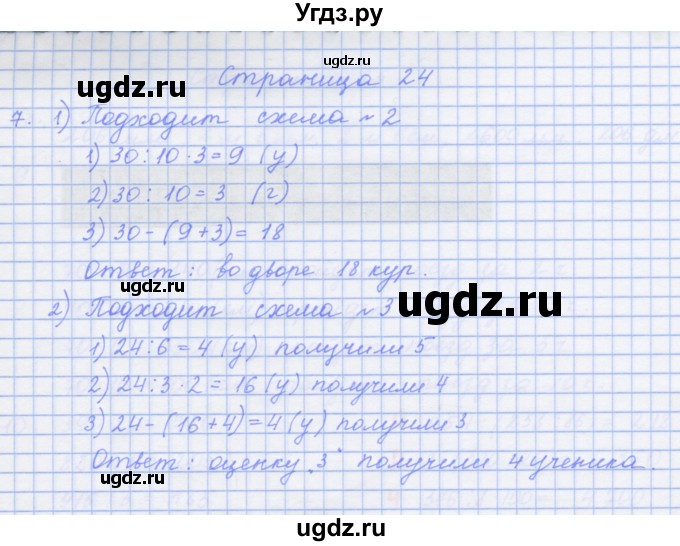 Угдз.ру
ugdz.ru
ugdz.ru
Страница 24
7. 1) Подходит схема ~ 2
1) 30:10·3=9 (у)
2) 30:10=3 (г)
3) 30-(9+3)=18
Ответ: во дворе 18 кур.
ugdz.ru
2) Подходит схема ~ 3
1) 24:6=4 (у) получили 5
ugdz.ru
2) 24:3·2=16 (у) получили 4
3) 24-(16+4)=4 (у) получили 3
Ответ: оценку "3" получили 4 ученика.
ugdz.ru
ugdz.ru